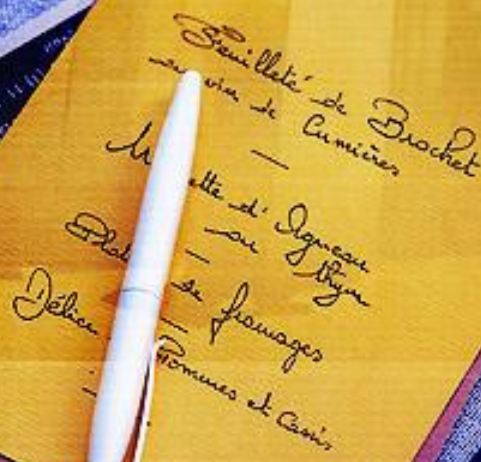 Feuilleté de Brochet
au vin de Cumières
d'Agneau
au thym
de fromages
Pommes et Cassis